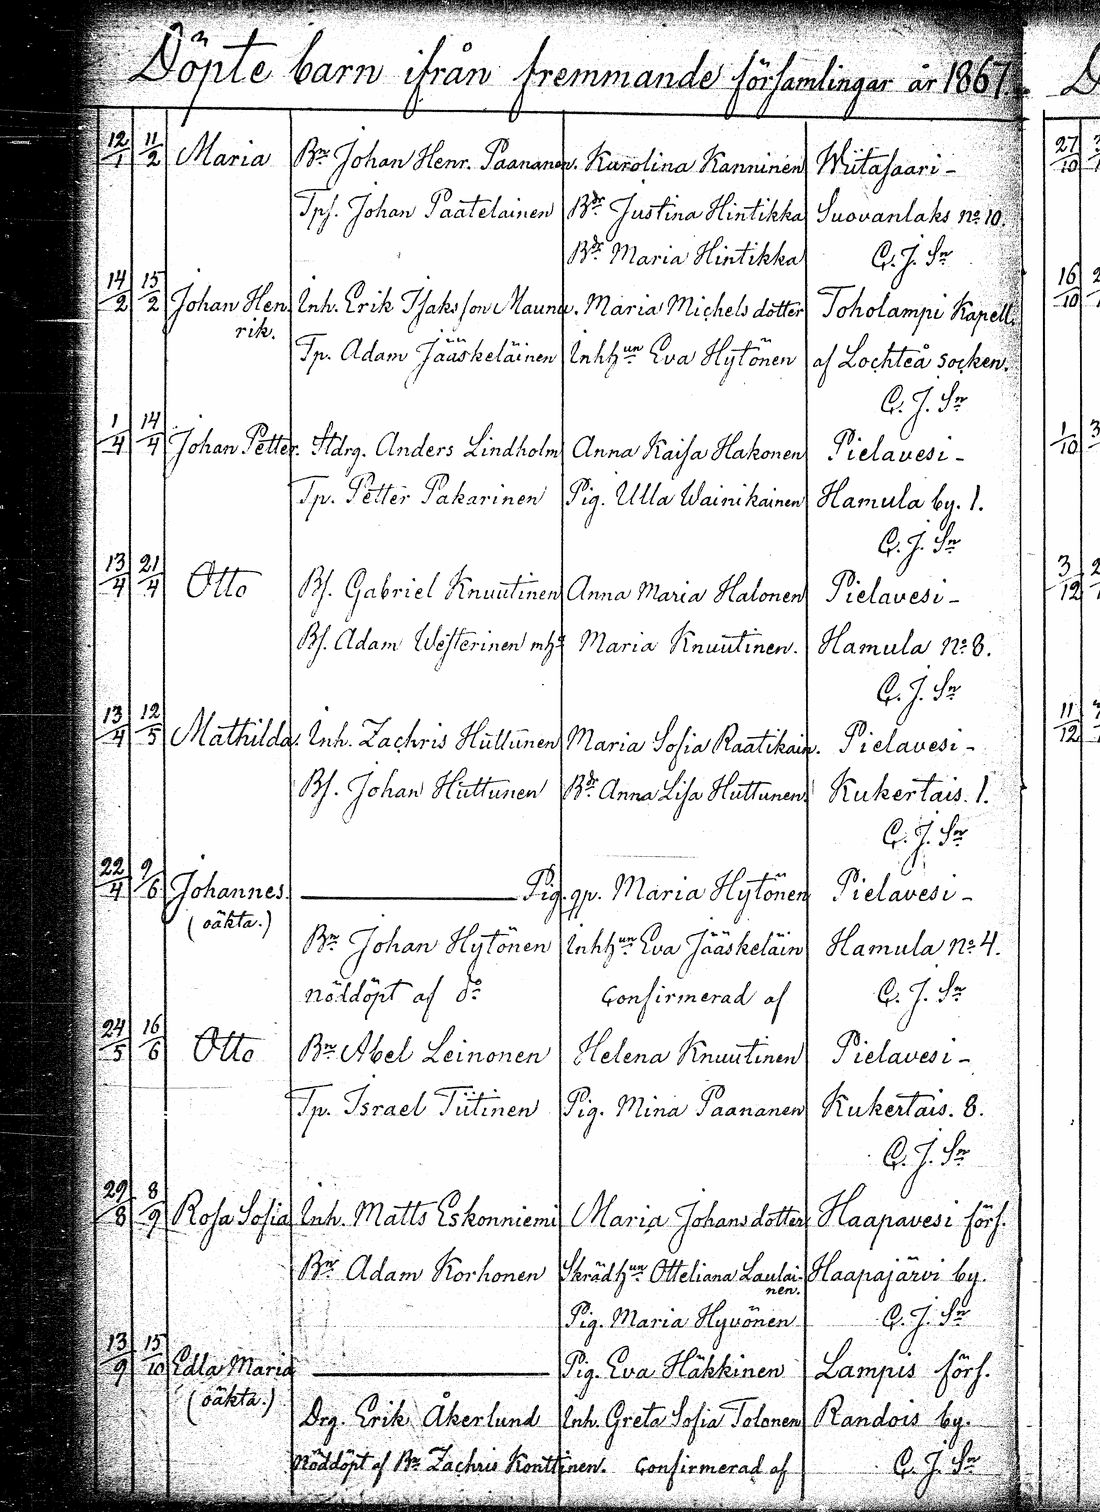 Döpte barn ifrån fremmande församlingar år 1867.
12/1 11/2 Maria Bn Johan Henr. Paananen. Karolina Kanninen Wiitasaari-
Tpf. Johan Paatelainen Bdr Justina Hintikka Suovanlaks no 10.
Bdr Maria Hintikka C. J. Sn
14/2 15/2 Johan Hen Inh. Erik Isaksson Maunu. Maria Michels dotter Toholampi Kapell.
rik.
Tp. Adam Jääskeläinen Inhhun Eva Hytönen af Lochteå socken.
C. J. Sn
1/4 14/4 Johan Petter. Stdrg. Anders Lindholm Anna Kaisa Hakonen Pielavesi-
Tp. Petter Pakarinen Pig. Ulla Wainikainen Hamula by. 1.
C. J. Sn
13/4 21/4 Otto Bf. Gabriel Knuutinen Anna Maria Halonen Pielavesi-
Bf. Adam Westerinen mhu Maria Knuutinen. Hamula no 8.
C. J. Sn
13/4 12/5 Mathilda. Inh. Zachris Huttunen Maria Sofia Raatikain. Pielavesi-
Bf. Johan Huttunen Bdr Anna Lisa Huttunen. Kukertais. 1.
C. J. Sn
22/4 9/6 Johannes. Pig. qp. Maria Hytönen Pielavesi-
(oäkta.)
Bn Johan Hytönen Inhhun Eva Jääskeläin Hamula no 4.
nöddöpt af do Confirmerad af C. J. Sn
24/5 16/6 Otto Bn Abel Leinonen Helena Knuutinen Pielavesi-
Tp. Israel Tiitinen Pig. Mina Paananen Kukertais. 8.
C. J. Sn
29/8 8/9 Rosa Sofia Inh. Matts Eskonniemi Maria Johansdotter Haapavesi förs.
Bn Adam Korhonen Skrädhun Otteliana Laulai- Haapajärvi by.
nen.
Pig. Maria Hyvönen C. J. Sn
13/9 15/10 Edla Maria Pig. Eva Häkkinen Lampis förs.
(oäkta.)
Drg. Erik Åkerlund Inh. Greta Sofia Tolonen Randois by.
Nöddöpt af Bn Zachris Konttinen. Confirmerad af C. J. Sn
27/10
16/10
1/10
3/12
11/12